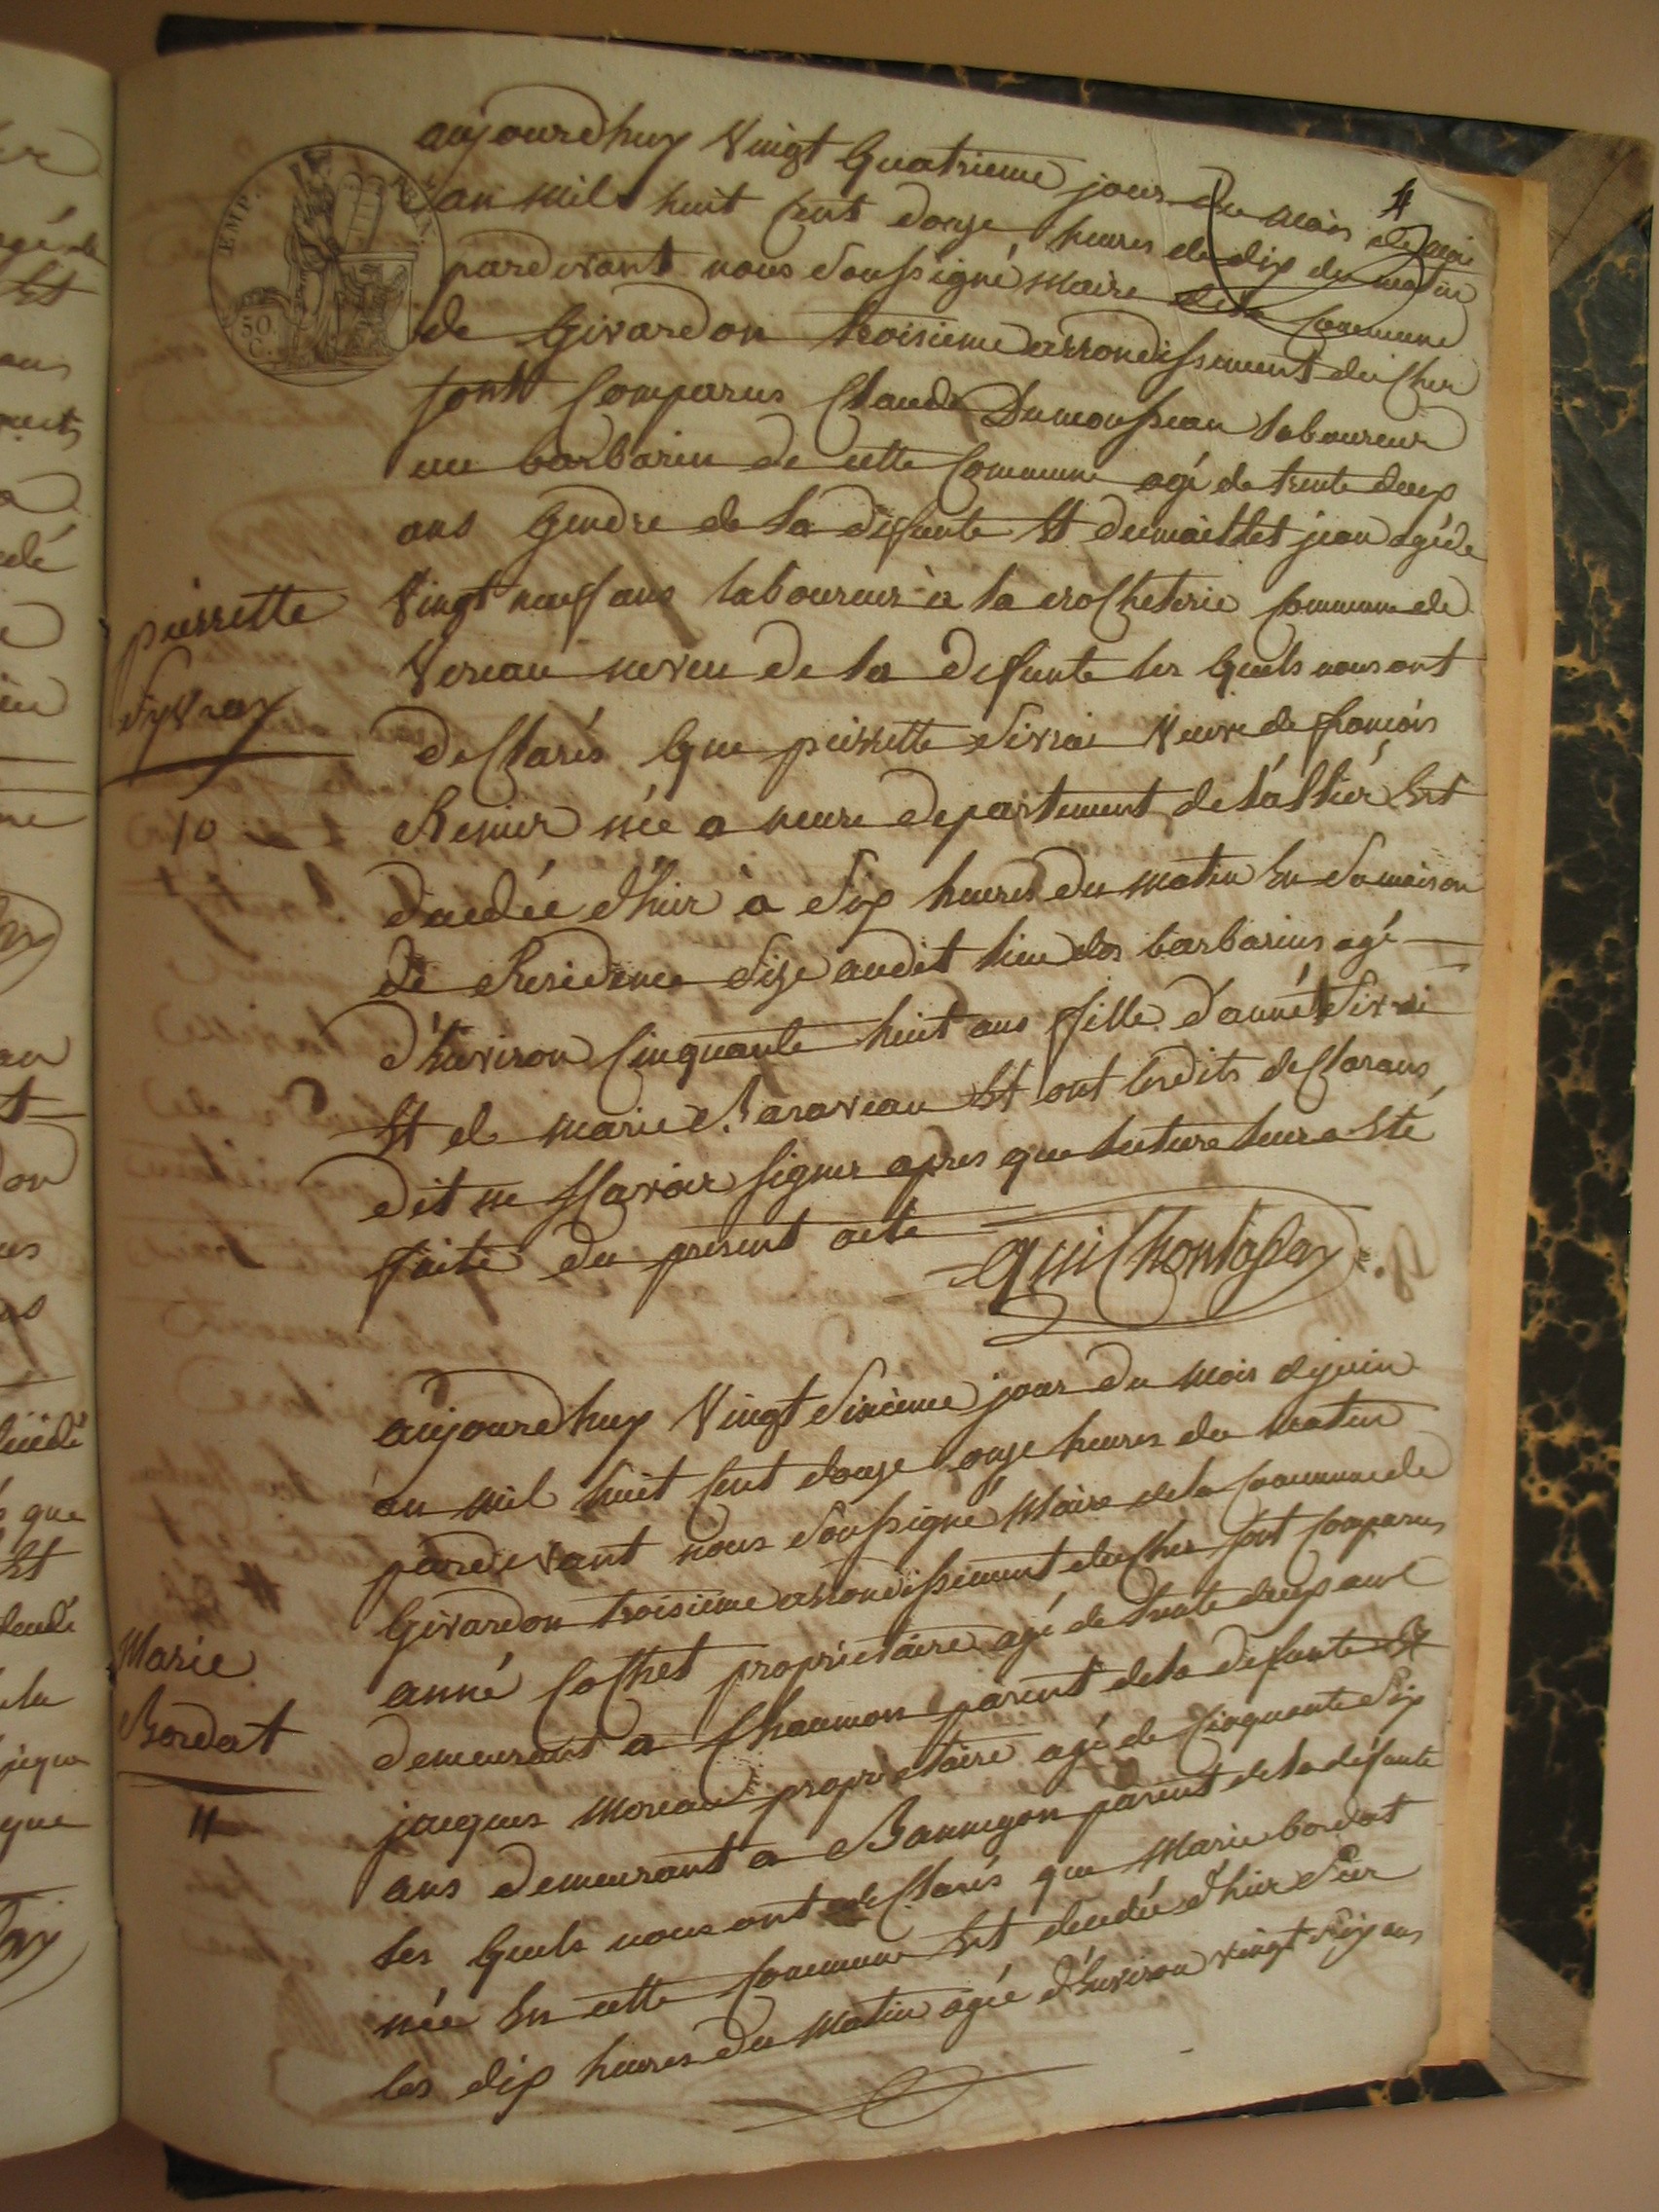 4
EMP. FRAN.
50
C.
aujourdhuy Vingt Quatrieme jour du mois de mai
an mil huit Cent douze heures de dix du matin
pardevant nous soussigné maire de la Commune
de Givardon troisieme arrondissement du Cher
sont Comparus Claude Dumousseau laboureur
au barbarin de cette Commune agé de trente deux
ans Gendre de la defunte Et dumaillet jean agé de
Vingt neuf ans laboureur à la crocheterie Commune de
Vereau neveu de la defunte les Quels nous ont
pierrette
Syvray
10
declarés Que pierrette Sivrai Veuve de françois
Renier née a neure departement de l'allier Est
deudée d'hier à dix heures du matin En sa maison
de Residence size audit lieu des barbarins agé
d'Environ Cinquante huit ans fille d'anné Sivrai
Et de marie Baraveau Et ont lesdits declarans
dit ne scavoir signer apres que lecture leur a Eté
faite du present acte
Guichontasay
aujourdhuy Vingt Sixieme jour du mois de juin
an mil huit Cent douze onze heures du matin
pardevant nous soussigné Maire de la Commune de
Givardon troisieme arrondissement du Cher sont Comparus
anné Cochet proprietaire agé de trente deux ans
demeurant a Chaumon parent de la defunte Et
Marie
Bordat
11
jacques moreau proprietaire agé de Cinquante Six
ans demeurant a Bannegon parent de la defunte
les Quels nous ont declarés que Marie bordat
née En cette Commune Est deudée d'hier Sur
les dix heures du Matin agée d'Environ vingt Six ans